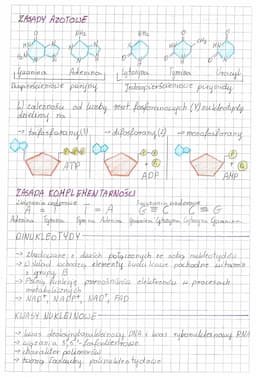 ZASADY AZOTOWE
NH₂ O NH₂ O O
CH₃
Guanina Adenina Cytozyna Tymina Uracyl
Dwupierścieniowe puryny Jednopierścieniowe pirymidy
W zależności od liczby reszt fosforanowych (V) nukleotydy
dzielimy na
→ trifosforany → difosforany → monofosforany
ATP ADP AMP
ZASADA KOMPLEMENTARNOŚCI
A = T = A G ≡ C C ≡ G
Adenina Tymina Tymina Adenina Guanina Cytozyna Cytozyna Guanina
DINUKLEOTYDY
→ zbudowane z dwóch połączonych ze sobą nukleotydów
→ W skład wchodzą elementy budulcowe pochodne witamin
z grupy B
→ Pełnią funkcję przenośników elektronów w procesach
metabolicznych
→ NAD⁺, NADP⁺, FAD
KWASY NUKLEINOWE
→ kwas deoksyrybonukleinowy DNA i kwas rybonukleinowy RNA
→ wiązania 3',5'-fosfodiestrowe
→ charakter polimerów
→ tworzą łańcuchy polinukleotydowe